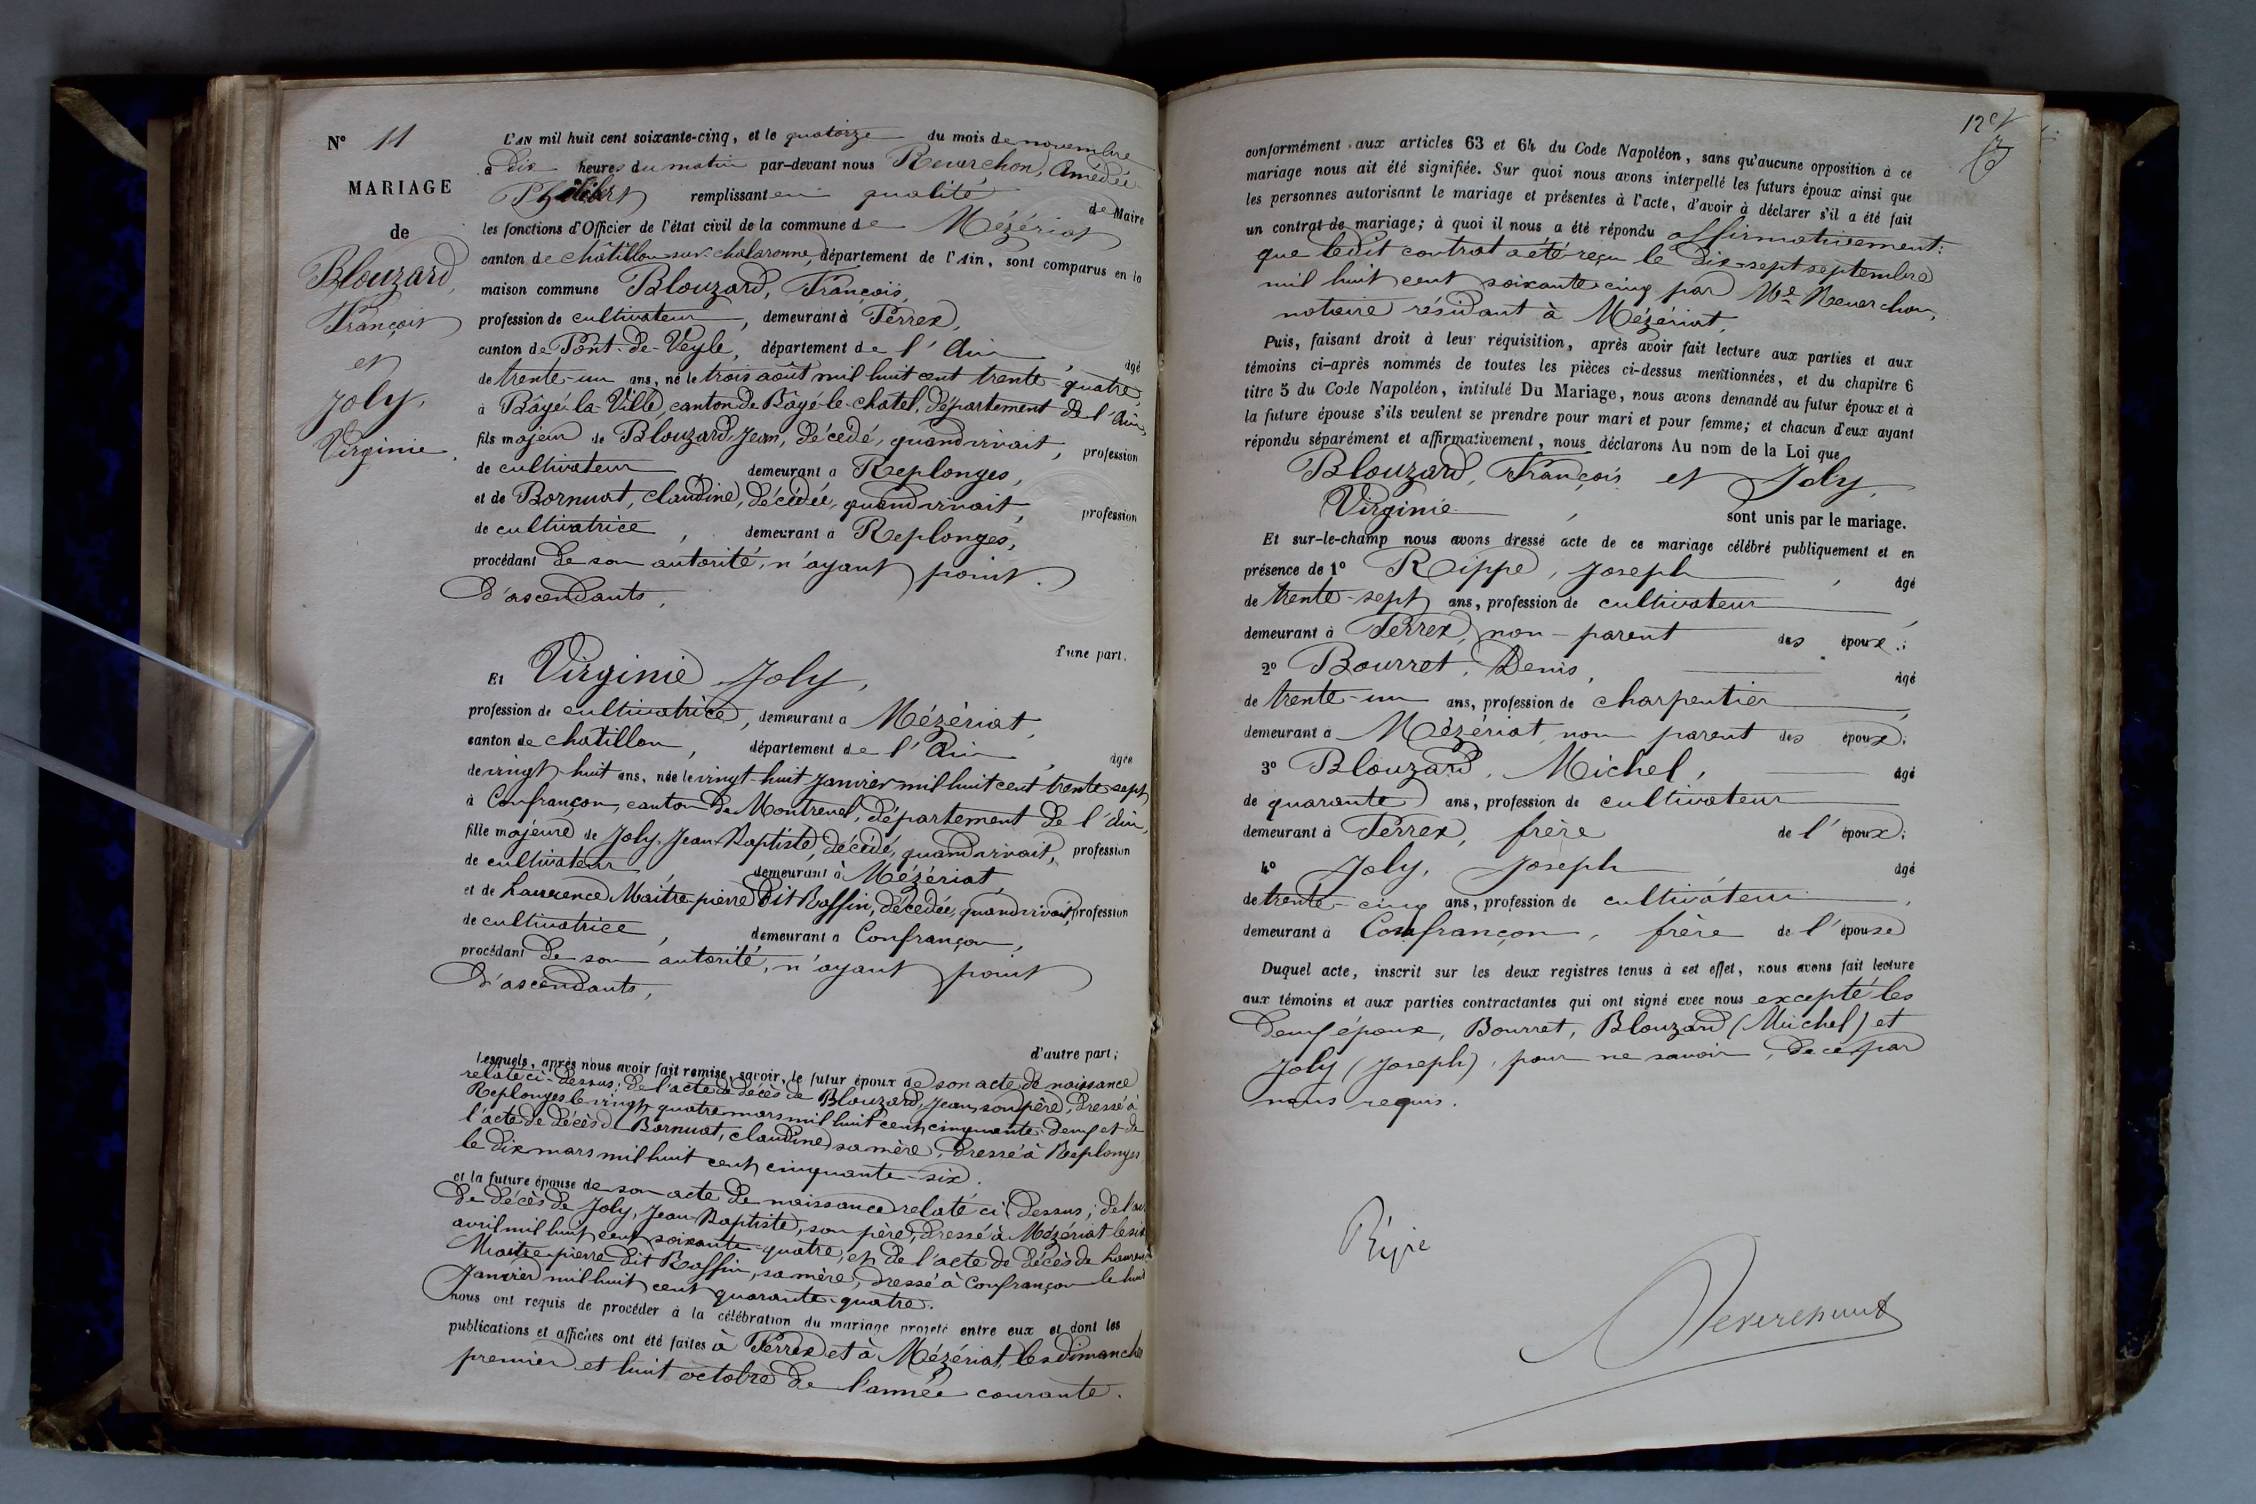 N° 11
MARIAGE
de
Blouzard,
François
et
Joly,
Virginie.
L'AN mil huit cent soixante-cinq, et le quatorze du mois de novembre
à dix heures du matin par-devant nous Reverchon, Amédée
Philibert remplissant en qualité de Maire
les fonctions d'Officier de l'état civil de la commune de Mézériat
canton de châtillon sur chalaronne, département de l'Ain, sont comparus en la
maison commune Blouzard, François,
profession de cultivateur, demeurant à Perrex,
canton de Pont-de-Veyle, département de l'Ain, âgé
de trente-un ans, né le trois août mil huit cent trente-quatre,
à Bâgé-la-Ville, canton de Bâgé-le-chatel, département de l'Ain,
fils majeur de Blouzard, Jean, décédé, quand vivait, profession
de cultivateur, demeurant à Replonges,
et de Bornuat, claudine, décédée, quand vivait, profession
de cultivatrice, demeurant à Replonges,
procédant de son autorité, n'ayant point
d'ascendants,
d'une part.
Et Virginie Joly,
profession de cultivatrice, demeurant à Mézériat,
canton de chatillon, département de l'Ain, âgée
de vingt-huit ans, née le vingt-huit janvier mil huit cent trente sept
à Confrançon, canton de Montrevel, département de l'Ain,
fille majeure de Joly, Jean-Baptiste, décédé, quand vivait, profession
de cultivateur, demeurant à Mézériat,
et de Laurence Maître-pierre dit Baffin, décédée, quand vivait, profession
de cultivatrice, demeurant à Confrançon,
procédant de son autorité, n'ayant point
d'ascendants,
d'autre part;
Lesquels, après nous avoir fait remise, savoir, le futur époux de son acte de naissance
relaté ci-dessus; de l'acte de décès de Blouzard, Jean, son père, dressé à
Replonges le vingt quatre mars mil huit cent cinquante-deux et de
l'acte de décès de Bornuat, claudine, sa mère, dressé à Replonges
le dix mars mil huit cent cinquante-six.
et la future épouse de son acte de naissance relaté ci-dessus; de l'acte
de décès de Joly, Jean-Baptiste, son père, dressé à Mézériat le six
avril mil huit cent soixante-quatre, et de l'acte de décès de Laurence
Maître-pierre dit Baffin, sa mère, dressé à Confrançon le huit
Janvier mil huit cent quarante-quatre.
nous ont requis de procéder à la célébration du mariage projeté entre eux et dont les
publications et affiches ont été faites à Perrex et à Mézériat, les dimanches
premier et huit octobre de l'année courante.
conformément aux articles 63 et 64 du Code Napoléon, sans qu'aucune opposition à ce
mariage nous ait été signifiée. Sur quoi nous avons interpellé les futurs époux ainsi que
les personnes autorisant le mariage et présentes à l'acte, d'avoir à déclarer s'il a été fait
un contrat de mariage; à quoi il nous a été répondu affirmativement:
que ledit contrat a été reçu le dix-sept septembre
mil huit cent soixante-cinq par Me Reverchon,
notaire résidant à Mézériat.
Puis, faisant droit à leur réquisition, après avoir fait lecture aux parties et aux
témoins ci-après nommés de toutes les pièces ci-dessus mentionnées, et du chapitre 6
titre 5 du Code Napoléon, intitulé Du Mariage, nous avons demandé au futur époux et à
la future épouse s'ils veulent se prendre pour mari et pour femme; et chacun d'eux ayant
répondu séparément et affirmativement, nous déclarons Au nom de la Loi que
Blouzard, François et Joly,
Virginie, sont unis par le mariage.
Et sur-le-champ nous avons dressé acte de ce mariage célébré publiquement et en
présence de 1° Rippe, Joseph, âgé
de trente-sept ans, profession de cultivateur,
demeurant à Perrex, non-parent des époux.;
2° Bourret, Denis, âgé
de trente-un ans, profession de charpentier,
demeurant à Mézériat, non parent des époux;
3° Blouzard, Michel, âgé
de quarante ans, profession de cultivateur
demeurant à Perrex, frère de l'époux;
4° Joly, Joseph âgé
de trente-cinq ans, profession de cultivateur,
demeurant à Confrançon, frère de l'épouse
Duquel acte, inscrit sur les deux registres tenus à cet effet, nous avons fait lecture
aux témoins et aux parties contractantes qui ont signé avec nous excepté les
deux époux, Bourret, Blouzard (Michel) et
Joly (Joseph), pour ne savoir, de ce par
nous requis.
Rippe
Reverchon